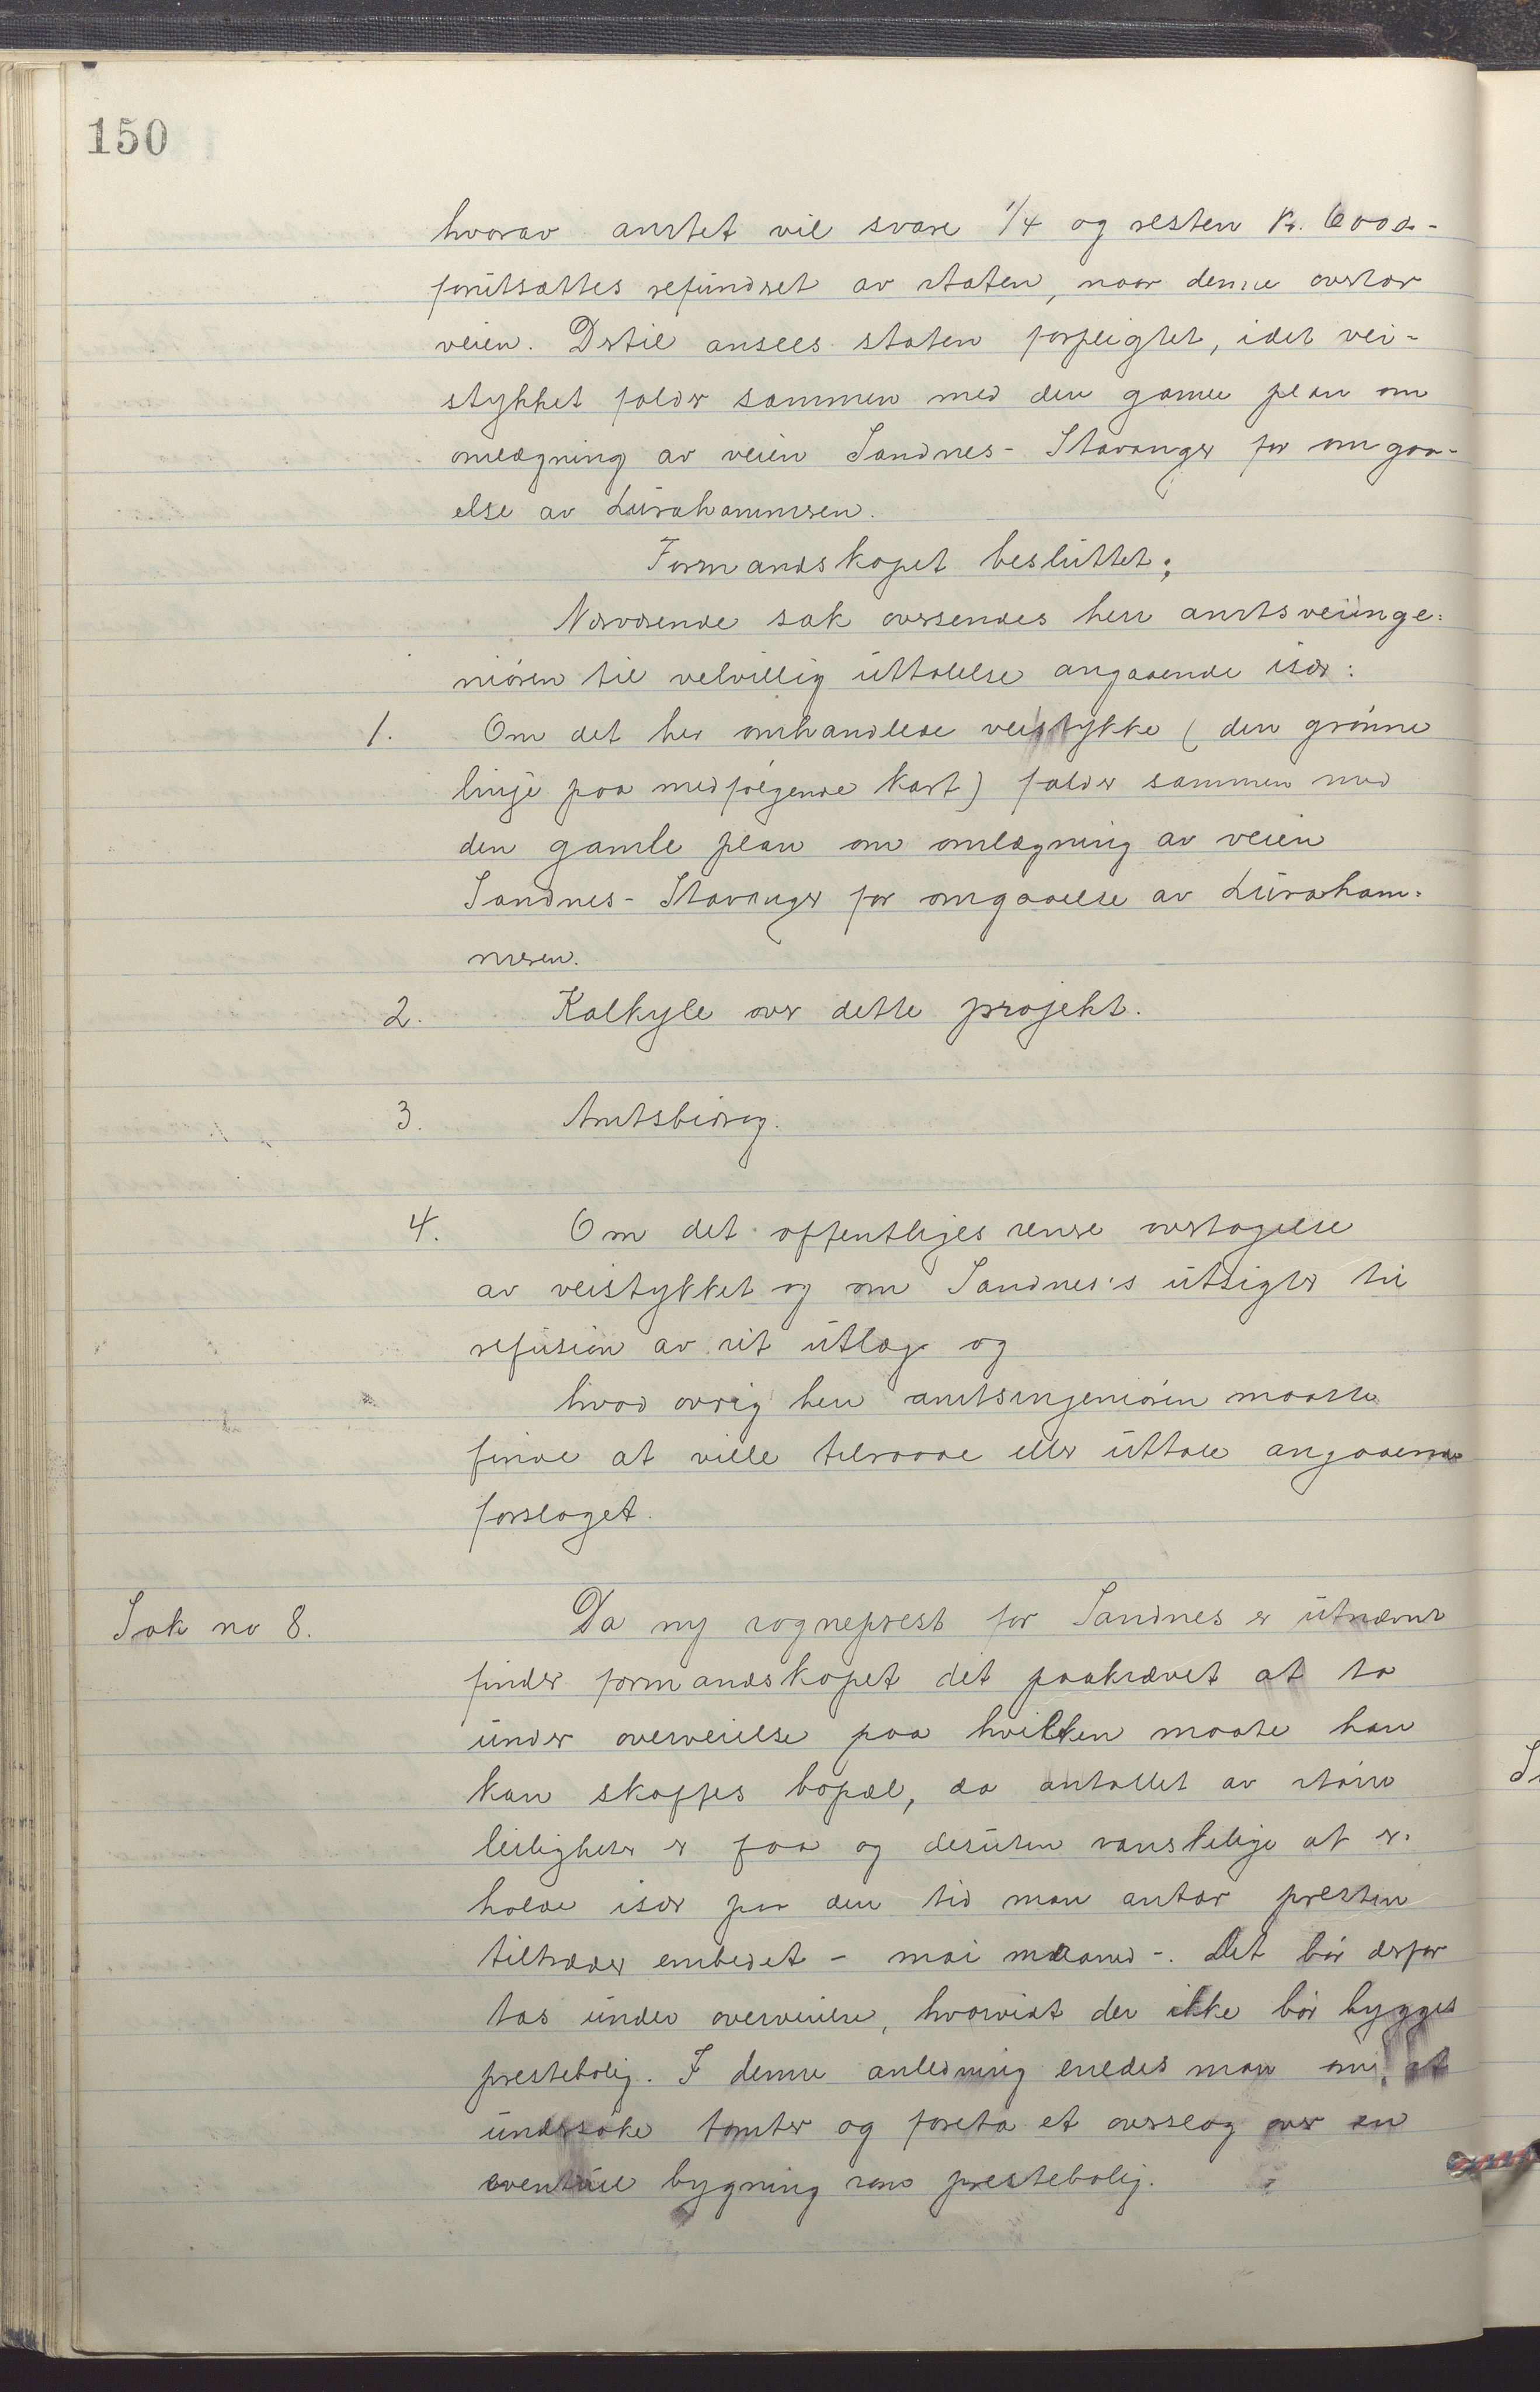 150
hvorav amtet vil svare 1/4 og resten Kr. 6000.-
forutsættes refundret av staten, naar denne overtar
veien. Dertil ansees staten forpligtet, idet vei-
stykket falder sammen med den gamle plan om
omlægning av veien Sandnes- Stavanger for omgaa-
else av Lurahammeren.
Formandskapet besluttet:
Nærværende sak oversendes herr amtsveiinge-
niøren til velvillig uttalelse angaaende især:
1. Om det her omhandlede veistykke (den grønne
linje paa medfølgende kart) falder sammen med
den gamle plan om omlægning av veien
Sandnes- Stavanger for omgaaelse av Luraham-
meren.
2. Kalkyle over dette projekt.
3. Amtsbidrag.
4. Om det offentliges senere overtagelse
av veistykket og om Sandnes's utsigter til
refusion av sit utlæg og
hvad øvrig herr amtsingeniøren maatte
finde at ville tilraade eller uttale angaaende
forslaget.
Sak no 8. Da ny sogneprest for Sandnes er utnævnt
finder formandskapet det paakrævet at ta
under overveielse paa hvilken maate han
kan skaffes bopæl, da antallet av større
leiligheter er faa og desuten vanskelige at er-
holde især paa den tid man antar presten
tiltræder embedet - mai maaned -. Det bør derfor
tas under overveielse, hvorvidt der ikke bør bygges
prestebolig. I denne anledning enedes man om at
undersøke tomter og foreta et overslag over en
eventuel bygning som prestebolig.